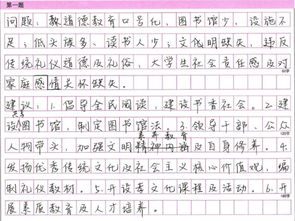 第一题
问题：教道德教育口号化，图书馆少，设施不
足；低头族多、读书人少；文化明缺失，违反
传统道德及礼俗，大学生社会责任感及对
家庭感情关怀缺失。
建议：1.倡导全民阅读，建设书香社会。2.建
设图书馆，制定图书馆法。3.领导干部、公众
人物带头，加强文明素养教育及自身修养。4.
发扬优秀传统文化及社会主义核心价值观，编
制礼仪教材。5.开设孝文化课程及活动。6.开
展素质教育及人才培养。